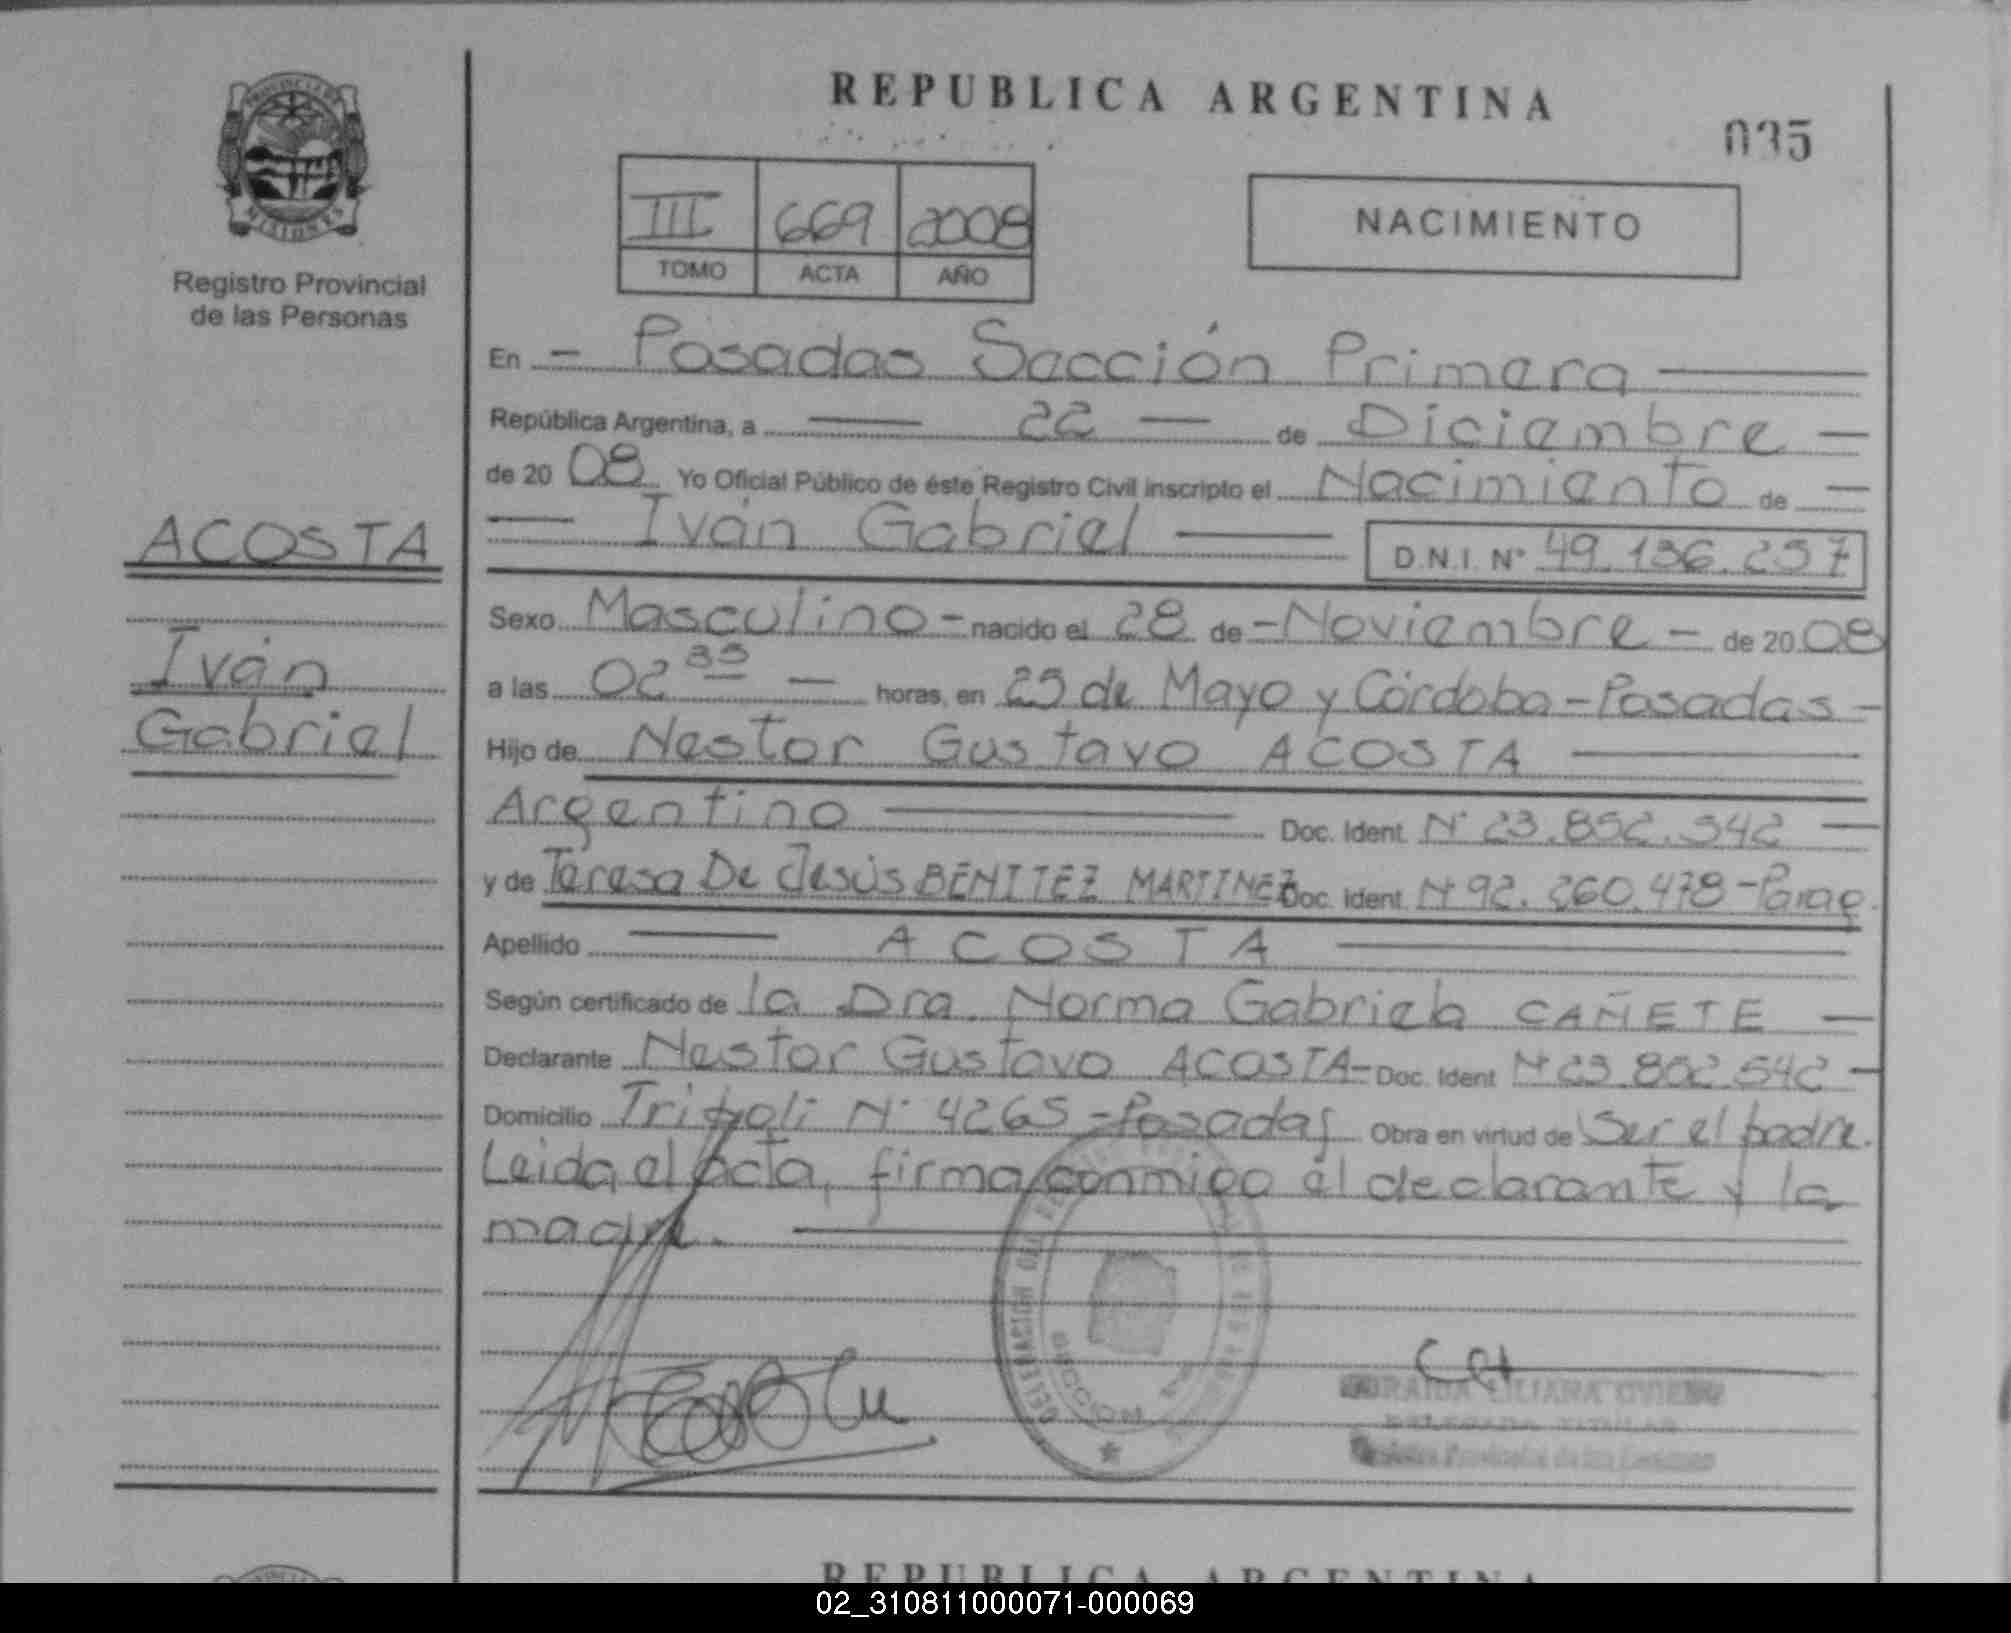 REPUBLICA ARGENTINA
035
PROVINCIA DE
MISIONES
Registro Provincial
de las Personas
III 669 2008
TOMO ACTA AÑO
NACIMIENTO
En - Posadas Sección Primera
República Argentina, a 22 de Diciembre
de 20 08 Yo Oficial Público de éste Registro Civil inscripto el Nacimiento de
Iván Gabriel D.N.I. N° 49.136.237
ACOSTA
Iván
Gabriel
Sexo Masculino - nacido el 28 de - Noviembre - de 20 08
a las 02 35 horas, en 25 de Mayo y Córdoba - Posadas -
Hijo de Nestor Gustavo ACOSTA
Argentino Doc. Ident. N° 23.852.542
y de Teresa De Jesús BENITEZ MARTINEZ Doc. Ident. N° 92.260.478 - Parag.
Apellido ACOSTA
Según certificado de la Dra. Norma Gabriela CAÑETE
Declarante Nestor Gustavo ACOSTA - Doc. Ident. N° 23.852.542 -
Domicilio Tripoli N° 4265 - Posadas Obra en virtud de Ser el padre.
Leida el acta, firma conmigo el declarante y la
madre.
LILIANA
DELEGADA TITULAR
REPUBLICA ARGENTINA
02_310811000071-000069